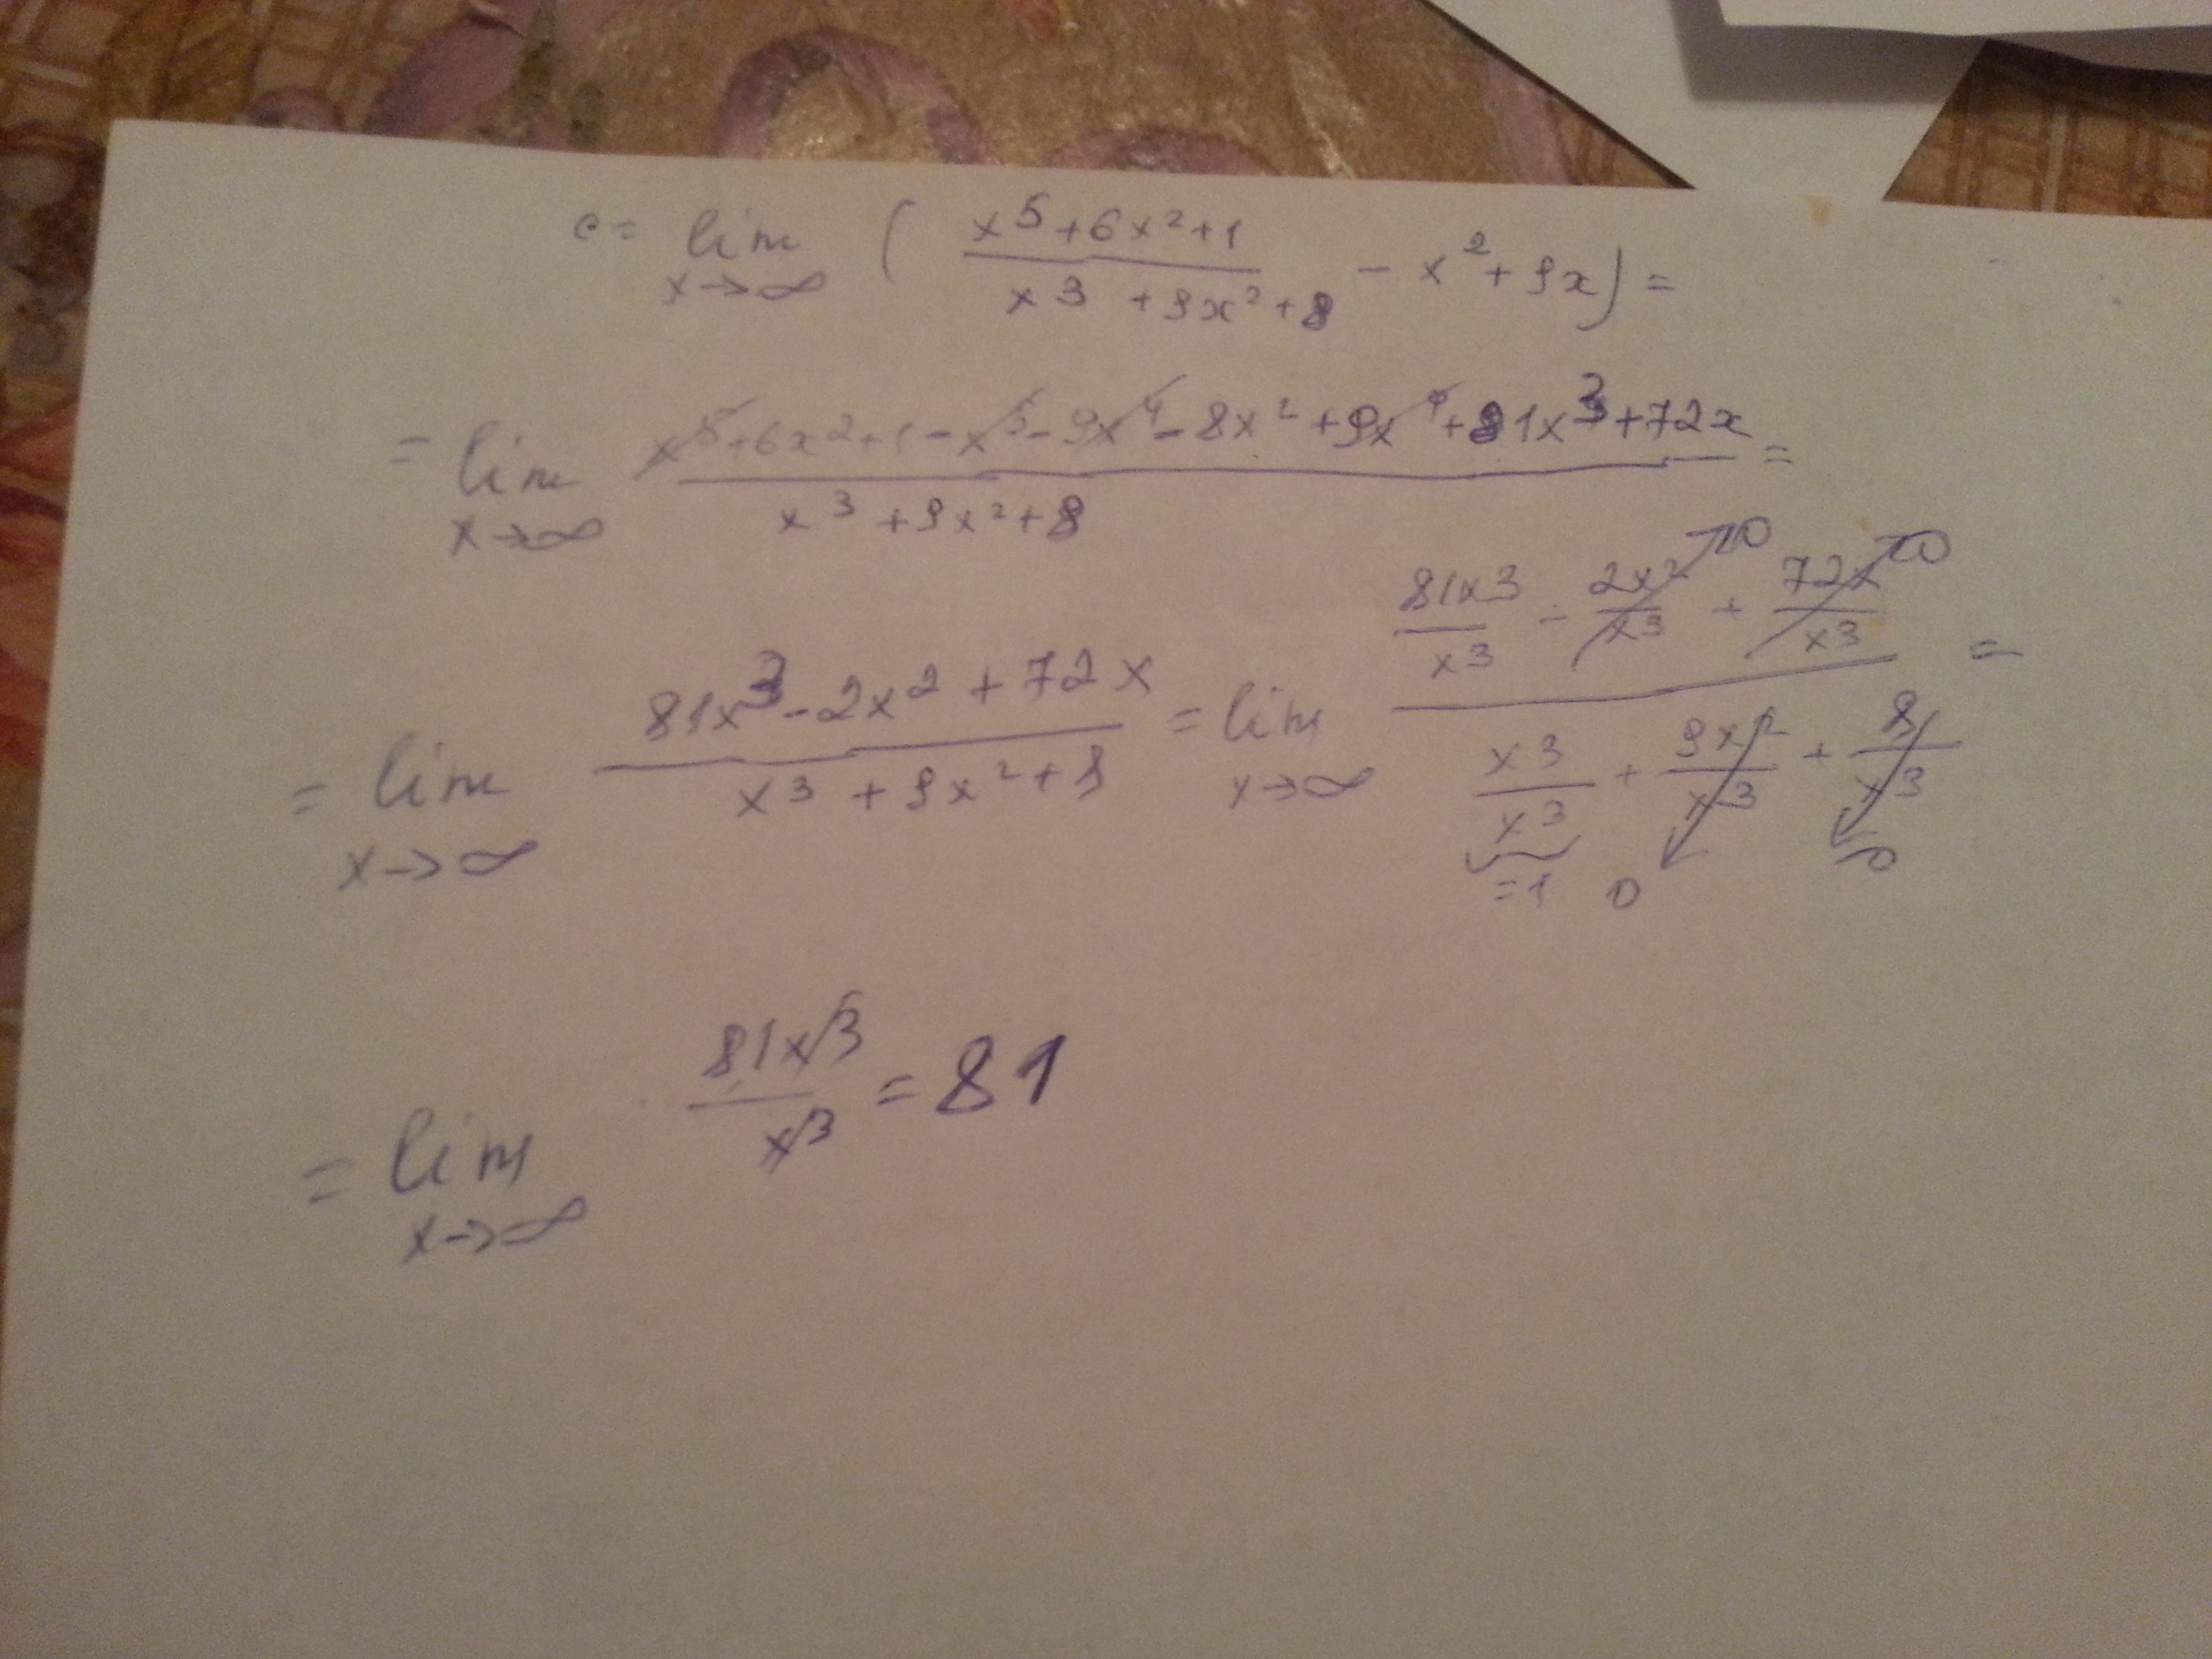 c = lim x→∞ ( (x^5+6x^2+1)/(x^3+9x^2+8) - x^2+9x) =
= lim x→∞ (x^5+6x^2+1-x^5-9x^4-8x^2+9x^4+81x^3+72x)/(x^3+9x^2+8) =
= lim x→∞ (81x^3-2x^2+72x)/(x^3+9x^2+8) = lim x→∞ (81x^3/x^3 - 2x^2/x^3 →0 + 72x/x^3 →0)/(x^3/x^3 =1 + 9x^2/x^3 →0 + 8/x^3 →0) =
= lim x→∞ 81x^3/x^3 = 81